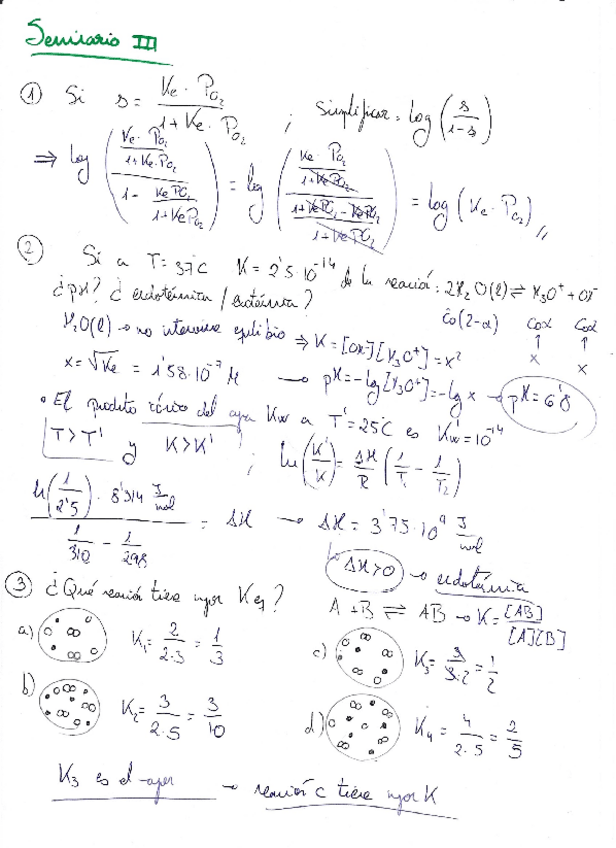 Seminario III
① Si s = Ke · PO₂ / 1 + Ke · PO₂ ; simplificar = log (s / 1-s)
⇒ log ( (Ke · PO₂ / 1+Ke·PO₂) / (1 - Ke PO₂ / 1+Ke PO₂) ) = log ( (Ke · PO₂ / 1+Ke PO₂) / (1+Ke PO₂ - Ke PO₂ / 1+Ke PO₂) ) = log (Ke · PO₂)
② Si a T = 37°C K = 2'5·10⁻¹⁴ de la reacción: 2H₂O(l) ⇌ H₃O⁺ + OH⁻
¿pH? ¿endotérmica / exotérmica? Co(2-α) Coα Coα
H₂O(l) → no interviene equilibrio ⇒ K = [OH⁻][H₃O⁺] = x² ↑ x ↑ x
x = √Ke = 1'58·10⁻⁷ M → pH = -log[H₃O⁺] = -log x → pH = 6'8
• El producto iónico del agua Kw a T' = 25°C es Kw' = 10⁻¹⁴
T > T' y K > K' ; ln (K'/K) = ΔH/R (1/T₁ - 1/T₂)
ln(1/2'5) · 8'314 J/mol / 1/310 - 1/298 = ΔH → ΔH = 3'75·10⁹ J/mol
ΔH > 0 → endotérmica
③ ¿Qué reacción tiene mayor Keq? A + B ⇌ AB → K = [AB] / [A][B]
a) K₁ = 2 / 2·3 = 1/3
c) K₃ = 3 / 3·2 = 1/2
b) K₂ = 3 / 2·5 = 3/10
d) K₄ = 4 / 2·5 = 2/5
K₃ es el mayor → reacción c tiene mayor K